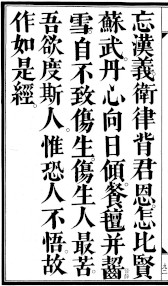 忘漢義。衛律背君恩。怎比賢
蘇武丹心向日傾。餐氊并齧
雪。自不致傷生。傷生人最苦。
吾欲度斯人。惟恐人不悟。故
作如是經。